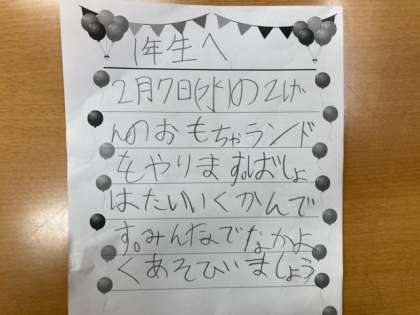 1年生へ
2月7日(水)の2げ
んのおもちゃランド
をやります。ばしょ
はたいいくかんで
す。みんなでなかよ
くあそびいましょう